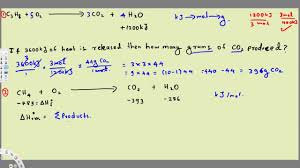 ① C₃H₈ + 5O₂ → 3CO₂ + 4H₂O
+1200kJ
kJ → mol → g
1200kJ 3mol
3mol
If 3600kJ of heat is released then how many grams of CO₂ produced?
3600kJ × 3mol/1200kJ × 44g CO₂/1mol = 3 × 3 × 44
= 9 × 44 = (10-1)44 = 440 - 44 = 396g CO₂
②
CH₄ + O₂ → CO₂ + H₂O
-393 -286
kJ/mol.
= ΣProducts.